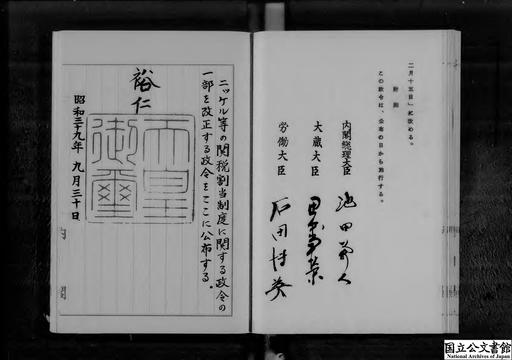 二月十五日」に改める。
附則
この政令は、公布の日から施行する。
内閣総理大臣
池田勇人
大蔵大臣
田中角榮
労働大臣
石田博英
ニッケル等の関税割当制度に関する政令の
一部を改正する政令をここに公布する。
裕仁
天皇
御璽
昭和三十九年九月三十日
国立公文書館
National Archives of Japan